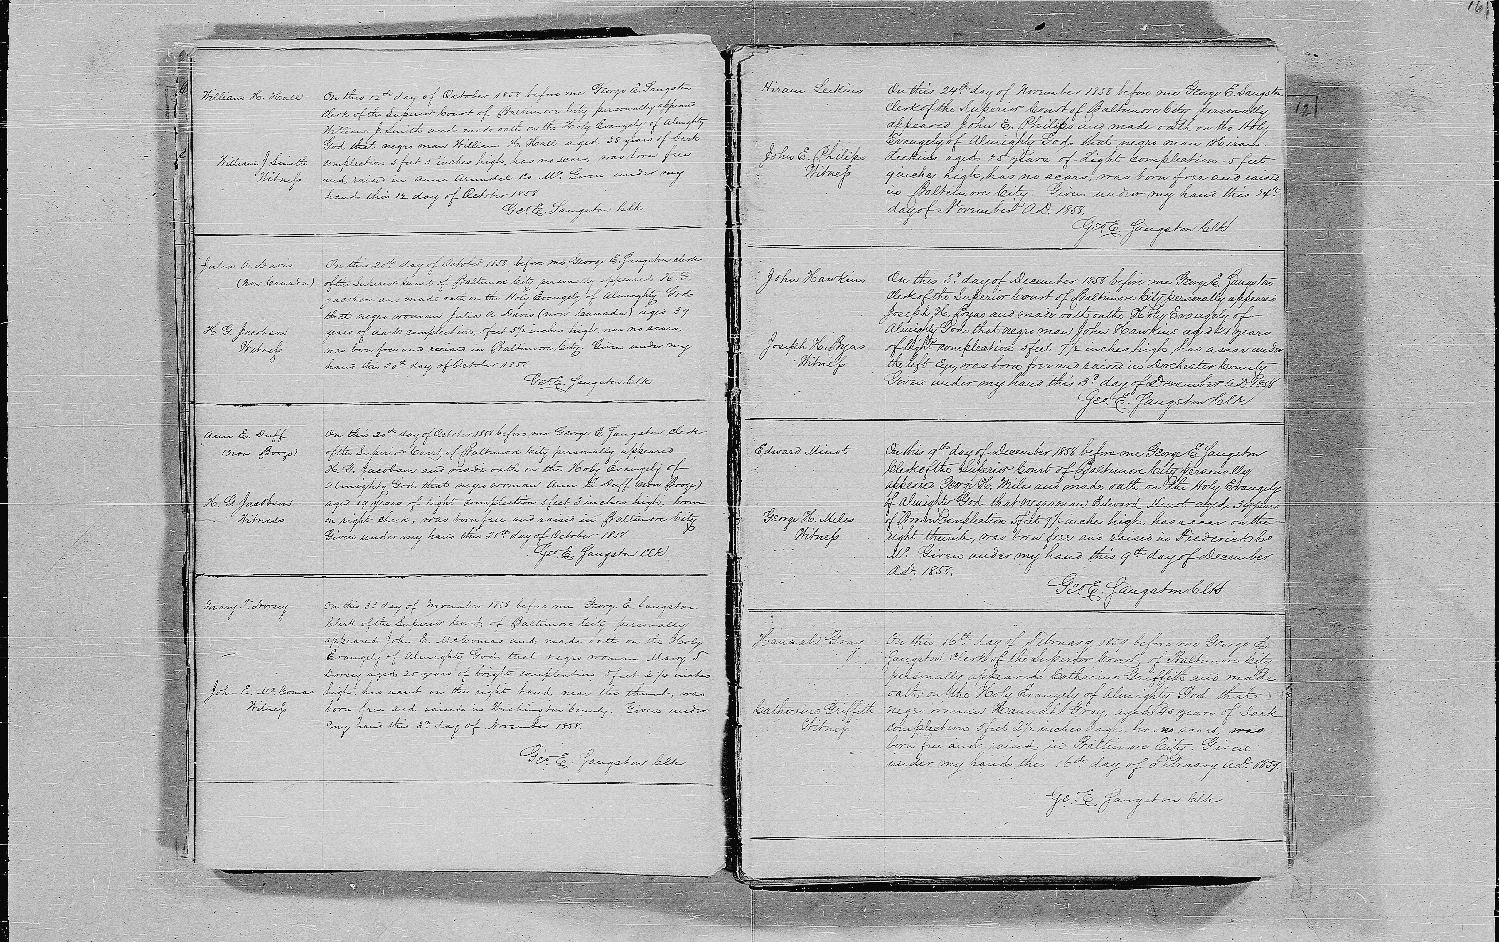 William H. Hall
On this 12th day of October 1858 before me George E. Sangston
clerk of the Superior Court of Baltimore City personally appeared
William J. Smith and made oath on the Holy Evangely of Almighty
God that negro man William H. Hall aged 38 years of dark
complection 5 feet 5 inches high, has no scars, was born free
and raised in Anne Arundel Co. Md. Given under my
hand this 12 day of October 1858
Geo. E. Sangston Clk
William J. Smith
Witness
Julia A. Davis
(now Canada)
On this 20th day of October 1858 before me George E. Sangston clerk
of the Superior Court of Baltimore City personally appeared H. G.
Jackson and made oath on the Holy Evangely of Almighty God
that negro woman Julia A Davis (now Canada) aged 37
years of dark complection, feet 5½ inches high has no scars,
was born free and raised in Baltimore City Given under my
hand this 20th day of October 1858
Geo. E. Sangston Clk
H. G. Jackson
Witness
Ann E. Duff
(now Boozs)
On this 20th day of October 1858 before me George E. Sangston clerk
of the Superior Court of Baltimore City personally appeared
H. G. Jacobson and made oath on the Holy Evangely of
Almighty God that negro woman Ann E. Duff (now Boozs)
aged years of light complection 5 feet 3 inches high
on right cheek, was born free and raised in Baltimore City
Given under my hand this day of October 1858
Geo E. Sangston Clk
Witness
On this 3d day of November 1858 before me George E. Sangston
Clerk of the Superior Court of Baltimore City personally
appeared John E. and made oath on the Holy
Evangely of Almighty God that negro woman Mary
Dorsey aged 20 years of bright complection 5 feet inches
high, has wart on the right hand near the thumb, was
born free and raised in Washington County. Given under
my hand this 3d day of November 1858.
Geo. E. Sangston Clk
John E.
Witness
Hiram
On this 24th day of November 1858 before me George E. Sangston
clerk of the Superior Court of Baltimore City personally
appeared John E. Philips and made oath on the Holy
Evangely of Almighty God, that negro man Hiram
aged years of light complection 5 feet
inches high, has no scars, was born free and raised
in Baltimore City Given under my hand this 24th
day of November A.D. 1858.
Geo. E. Sangston Clk
John E. Philips
Witness
John Hawkins
On this 3d day of December 1858 before me George E. Sangston
clerk of the Superior Court of Baltimore City personally appeared
Joseph H. Byas and made oath on the Holy Evangely of
Almighty God that negro man John Hawkins aged years
of light complection 5 feet 7½ inches high, has a scar under
the left Eye, was born free and raised in Dorchester County
Given under my hand this 3d day of December A.D. 1858
Geo. E. Sangston Clk
Joseph H. Byas
Witness
Edward Minot
On this 9th day of December 1858 before me George E. Sangston
Clerk of the Superior Court of Baltimore City personally
appeared George H. Miles and made oath on the Holy Evangely
of Almighty God that negro man Edward Minot aged years
of Brown Complection 5 feet 7½ inches high, has a scar on the
right thumb, was born free and raised in Frederick Co
Md. Given under my hand this 9th day of December
A.D. 1858.
Geo. E. Sangston Clk
George H. Miles
Witness
Hannah Gray
On this 16th day of February 1859 before me George E.
Sangston clerk of the Superior Court of Baltimore City
personally appeared Catharine Griffith and made
oath on the Holy Evangely of Almighty God that
negro woman Hannah Gray aged 45 years of dark
complection 5 feet inches high has no scars, was
born free and raised in Baltimore City. Given
under my hand this 16th day of February A.D. 1859
Geo. E. Sangston Clk
Catharine Griffith
Witness